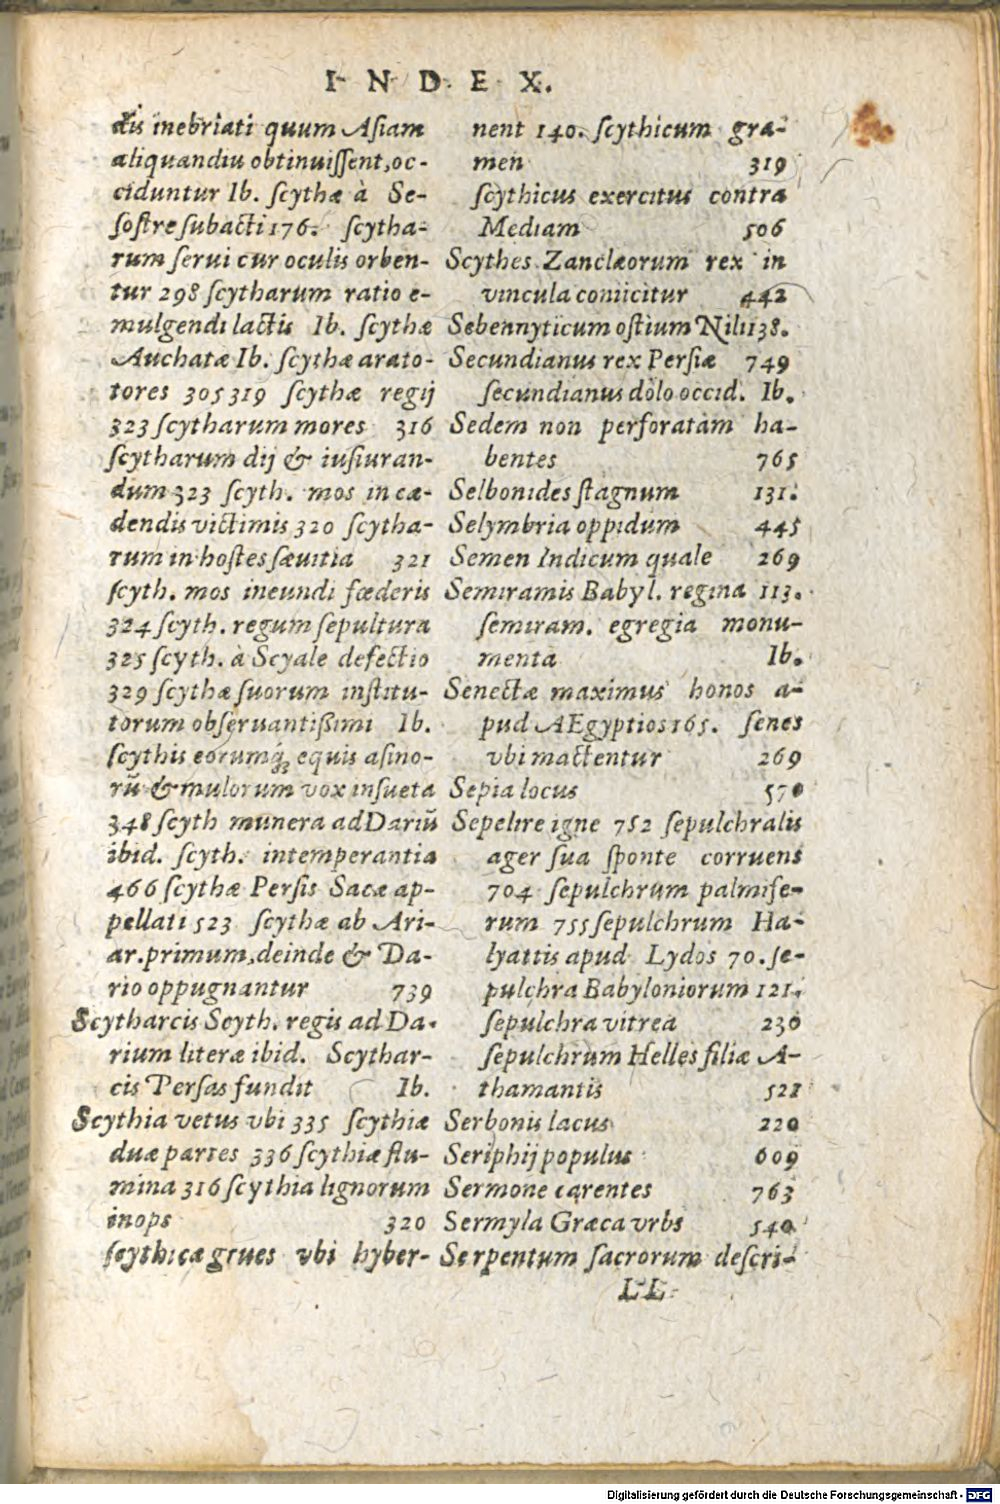 INDEX.
dis inebriati quum Asiam
aliquandiu obtinuissent, oc-
ciduntur Ib. scythæ à Se-
sostre subacti 176. scytha-
rum serui cur oculis orben-
tur 298 scytharum ratio e-
mulgendi lactis Ib. scythæ
Auchatæ Ib. scythæ arato-
tores 305 319 scythæ regij
323 scytharum mores 316
scytharum dij & iusiuran-
dum 323 scyth. mos in cæ-
dendis victimis 320 scytha-
rum in hostes sæuitia 321
scyth. mos ineundi fœderis
324 scyth. regum sepultura
325 scyth. à Scyale defectio
329 scythæ suorum institu-
torum obseruantißimi Ib.
scythis eorumq́ꝫ equis asino-
rũ & mulorum vox insueta
348 scyth munera ad Dariũ
ibid. scyth. intemperantia
466 scythæ Persis Sacæ ap-
pellati 523 scythæ ab Ari-
ar. primum, deinde & Da-
rio oppugnantur 739
Scytharcis Scyth. regis ad Da-
rium literæ ibid. Scythar-
cis Persas fundit Ib.
Scythia vetus vbi 335 scythiæ
duæ partes 336 scythiæ flu-
mina 316 scythia lignorum
inops 320
scythicæ grues vbi hyber-
nent 140. scythicum gra-
men 319
scythicus exercitus contra
Mediam 506
Scythes Zanclæorum rex in
vincula coniicitur 442
Sebennyticum ostium Nili 138.
Secundianus rex Persiæ 749
secundianus dolo occid. Ib.
Sedem non perforatam ha-
bentes 765
Selbonides stagnum 131.
Selymbria oppidum 445
Semen Indicum quale 269
Semiramis Babyl. regina 113.
semiram. egregia monu-
menta Ib.
Senectæ maximus honos a-
pud AEgyptios 165. senes
vbi mactentur 269
Sepia locus 570
Sepelire igne 752 sepulchralis
ager sua sponte corruens
704 sepulchrum palmife-
rum 755 sepulchrum Ha-
lyattis apud Lydos 70. se-
pulchra Babyloniorum 121.
sepulchra vitrea 230
sepulchrum Helles filiæ A-
thamantis 521
Serbonis lacus 220
Seriphij populus 609
Sermone carentes 763
Sermyla Græca vrbs 540
Serpentum sacrorum descri-
LL
Digitalisierung gefördert durch die Deutsche Forschungsgemeinschaft - DFG